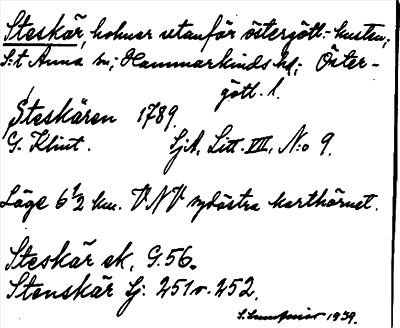 Steskär, holmar utanför östergötl.-kusten;
S:t Anna sn; Hammarkinds hd; Öster-
götl. l.
Steskären 1789.
G. Klint. Sjk. Litt. VII, N:o 9.
Läge 6 1/2 km. VNV sydöstra karthörnet.
Steskär ek. G.56.
Stenskär Sj: 251 o. 252.
1939.